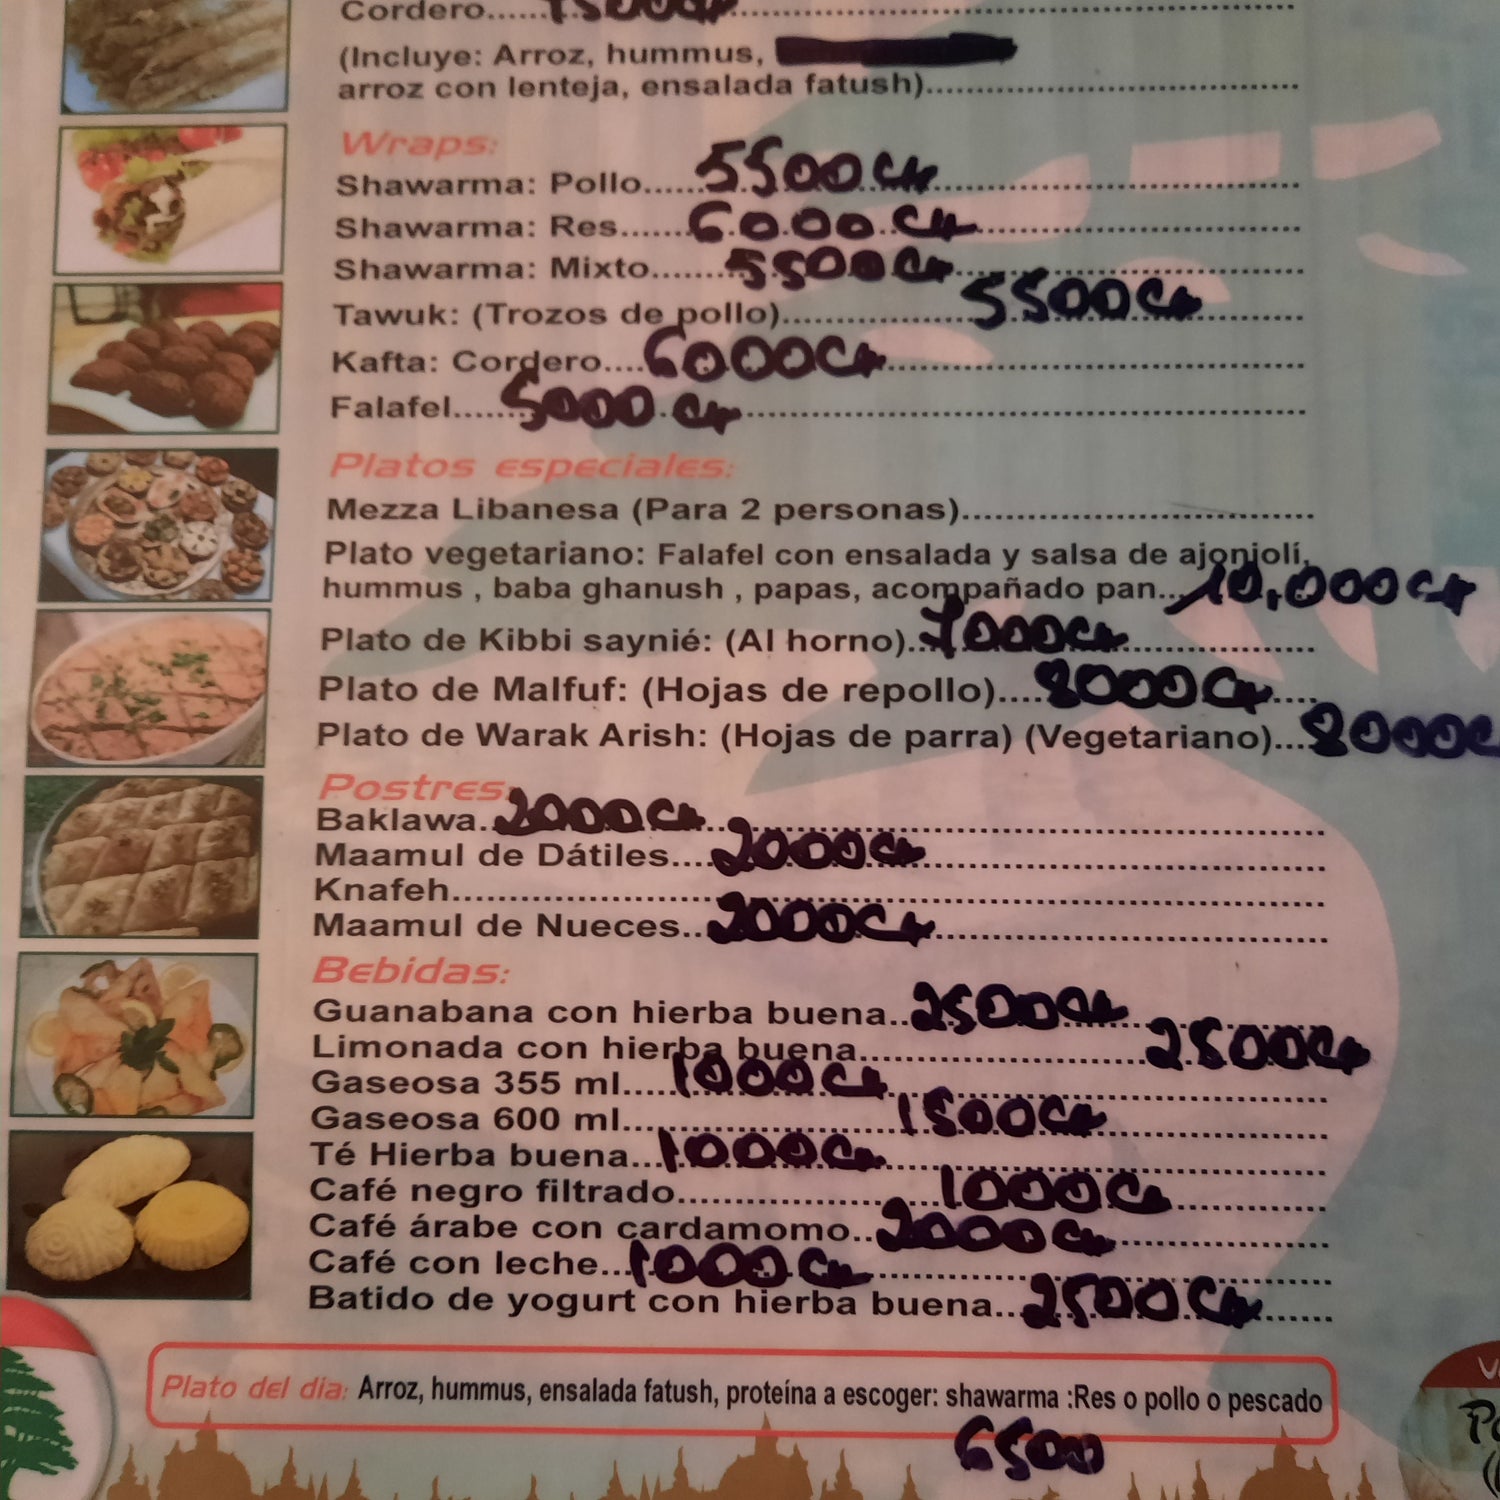 Cordero......7500C
(Incluye: Arroz, hummus,
arroz con lenteja, ensalada fatush)
Wraps:
Shawarma: Pollo......5500 CH
Shawarma: Res......6000 CH
Shawarma: Mixto.......5500 CH
Tawuk: (Trozos de pollo)..............5500 CH
Kafta: Cordero....6000 CH
Falafel......5000 CH
Platos especiales:
Mezza Libanesa (Para 2 personas)
Plato vegetariano: Falafel con ensalada y salsa de ajonjolí,
hummus , baba ghanush , papas, acompañado pan...10,000 CH
Plato de Kibbi saynié: (Al horno)..7000 CH
Plato de Malfuf: (Hojas de repollo)....8000 CH
Plato de Warak Arish: (Hojas de parra) (Vegetariano)...8000C
Postres:
Baklawa..2000 CH
Maamul de Dátiles....2000 CH
Knafeh
Maamul de Nueces..2000 CH
Bebidas:
Guanabana con hierba buena..2500 CH
Limonada con hierba buena....................2500 CH
Gaseosa 355 ml....1000 CH
Gaseosa 600 ml....................1500 CH
Té Hierba buena...1000 CH
Café negro filtrado...................1000 CH
Café árabe con cardamomo..2000 CH
Café con leche...1000 CH
Batido de yogurt con hierba buena...2500 CH
Plato del dia: Arroz, hummus, ensalada fatush, proteína a escoger: shawarma :Res o pollo o pescado
6500